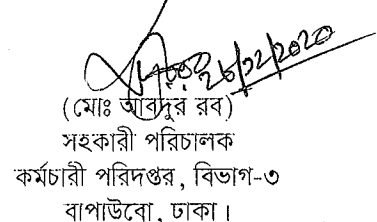 ২৮/১২/২০২০
(মোঃ আবদুর রব)
সহকারী পরিচালক
কর্মচারী পরিদপ্তর, বিভাগ-৩
বাপাউবো, ঢাকা।